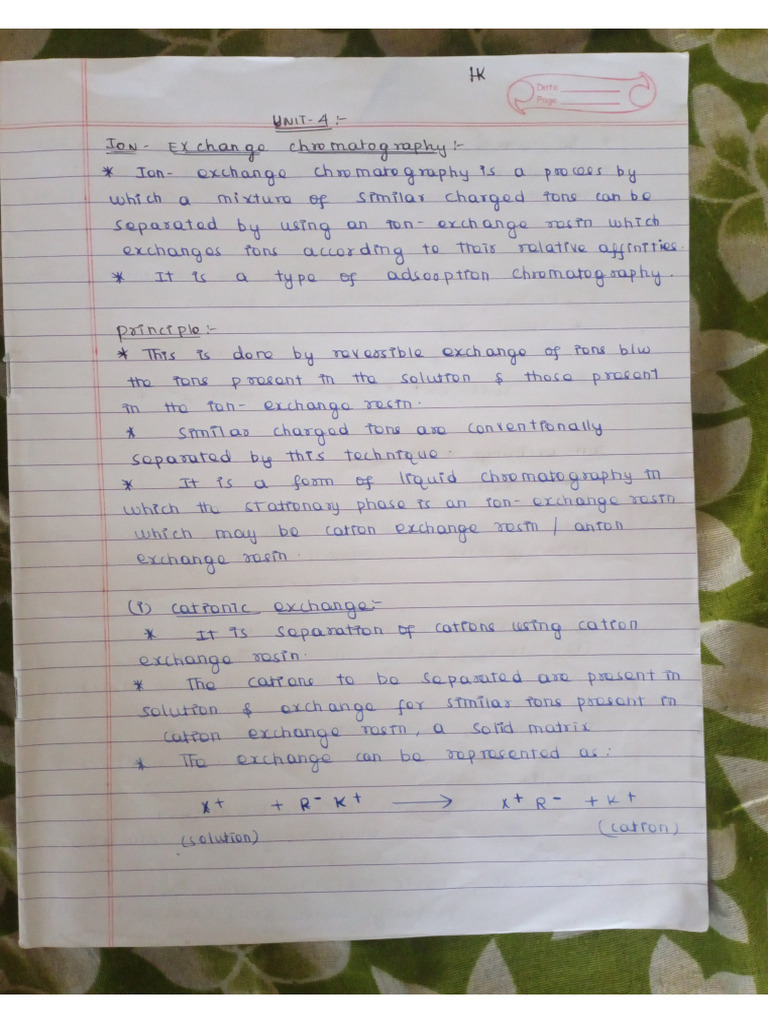 HK
Date
Page
UNIT-4 :-
Ion- Exchange chromatography :-
* Ion- exchange chromatography is a process by
which a mixture of similar charged ions can be
separated by using an ion- exchange resin which
exchanges ions according to their relative affinities.
* It is a type of adsooption chromatography.
principle :-
* This is done by reversible exchange of ions b/w
the ions present in the solution & those present
in the ion- exchange resin.
* similar charged ions are conventionally
separated by this technique.
* It is a form of liquid chromatography in
which the stationary phase is an ion- exchange resin
which may be cation exchange resin / anion
exchange resin.
(i) cationic exchange:-
* It is separation of cations using cation
exchange resin.
* The cations to be separated are present in
solution & exchange for similar ions present in
cation exchange resin, a solid matrix
* The exchange can be represented as:
X+ + R- K+ → X+ R- + K+
(solution) (cation)